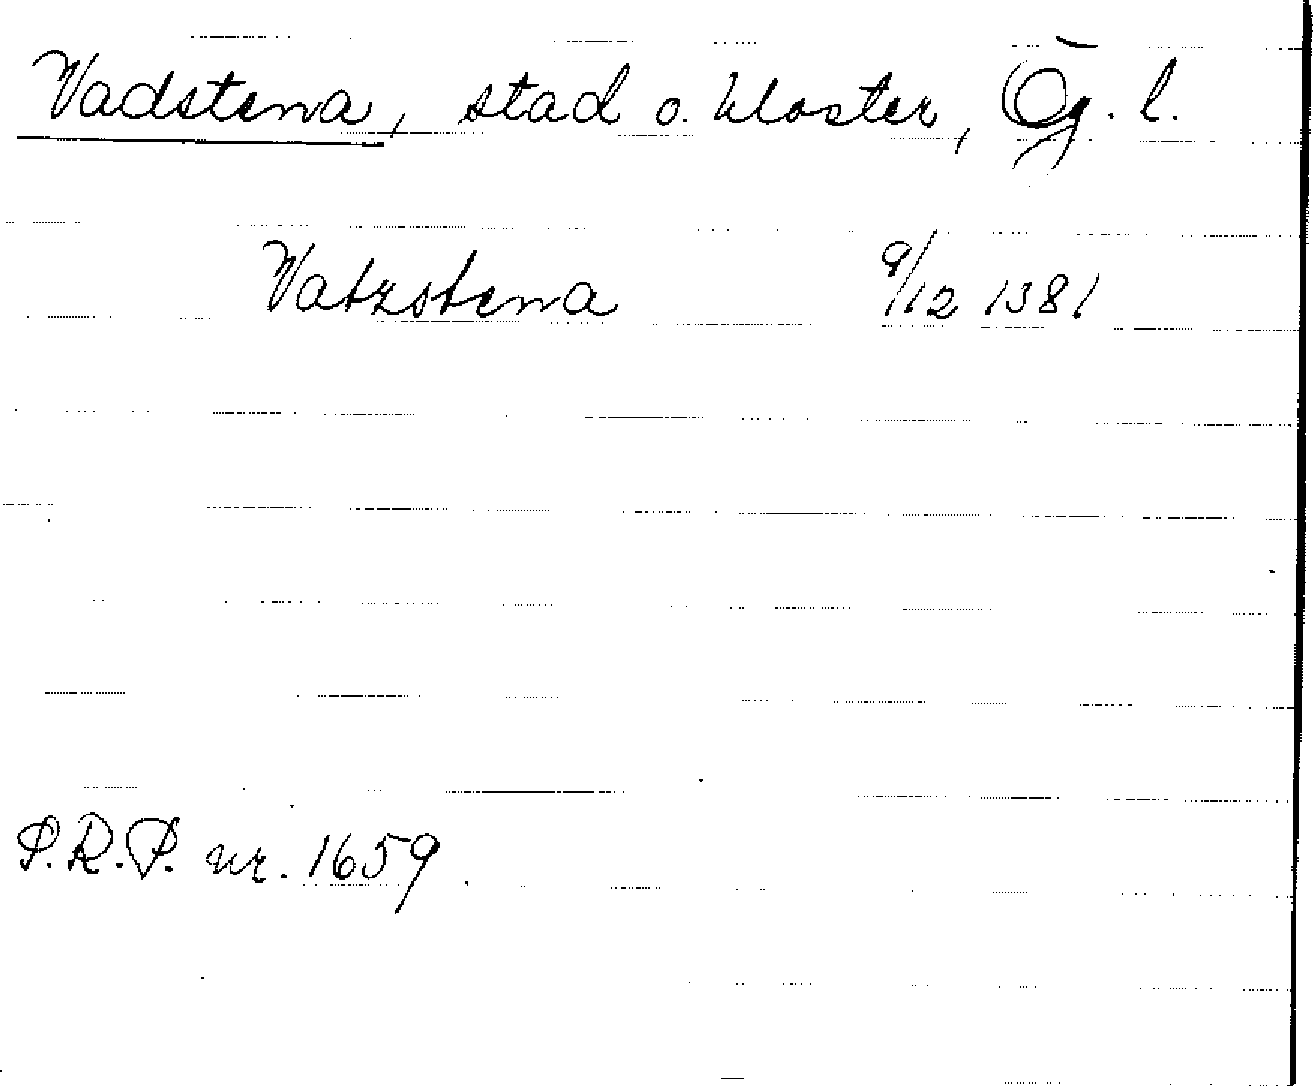 Vadstena, stad o. kloster, Ög. l.
Vatzstena 9/12 1381
S.R.P. nr. 1659.